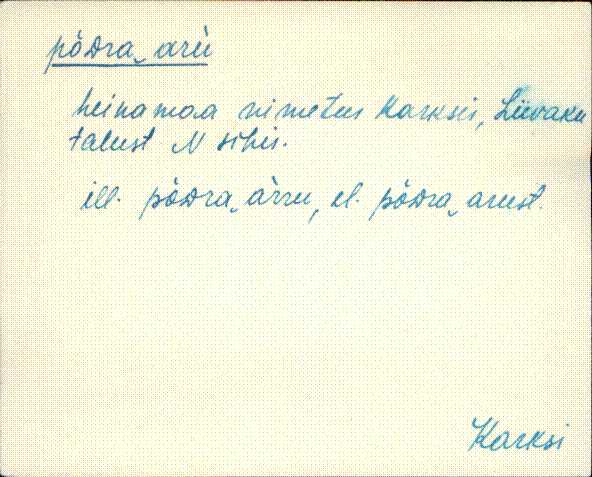 põdra‿arũ
heinamaa nimetus Karksis, Liivaku
talust N sihis.
ill. põdra‿ărru, el. põdra‿arust.
Karksi